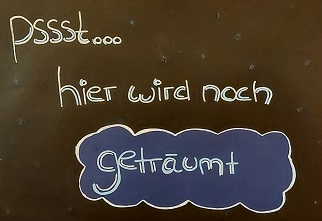 pssst...
hier wird noch
geträumt